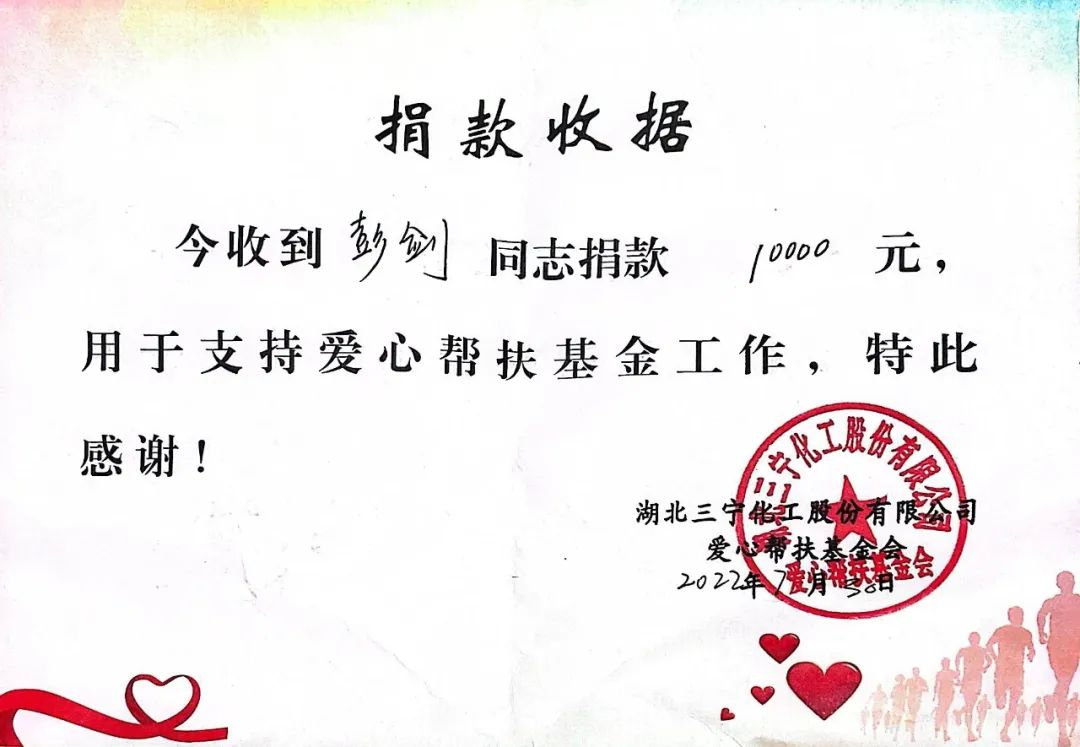 捐款收据
今收到 彭剑 同志捐款 10000 元，
用于支持爱心帮扶基金工作，特此
感谢！
湖北三宁化工股份有限公司
爱心帮扶基金会
2022年7月30日
湖北三宁化工股份有限公司
爱心帮扶基金会